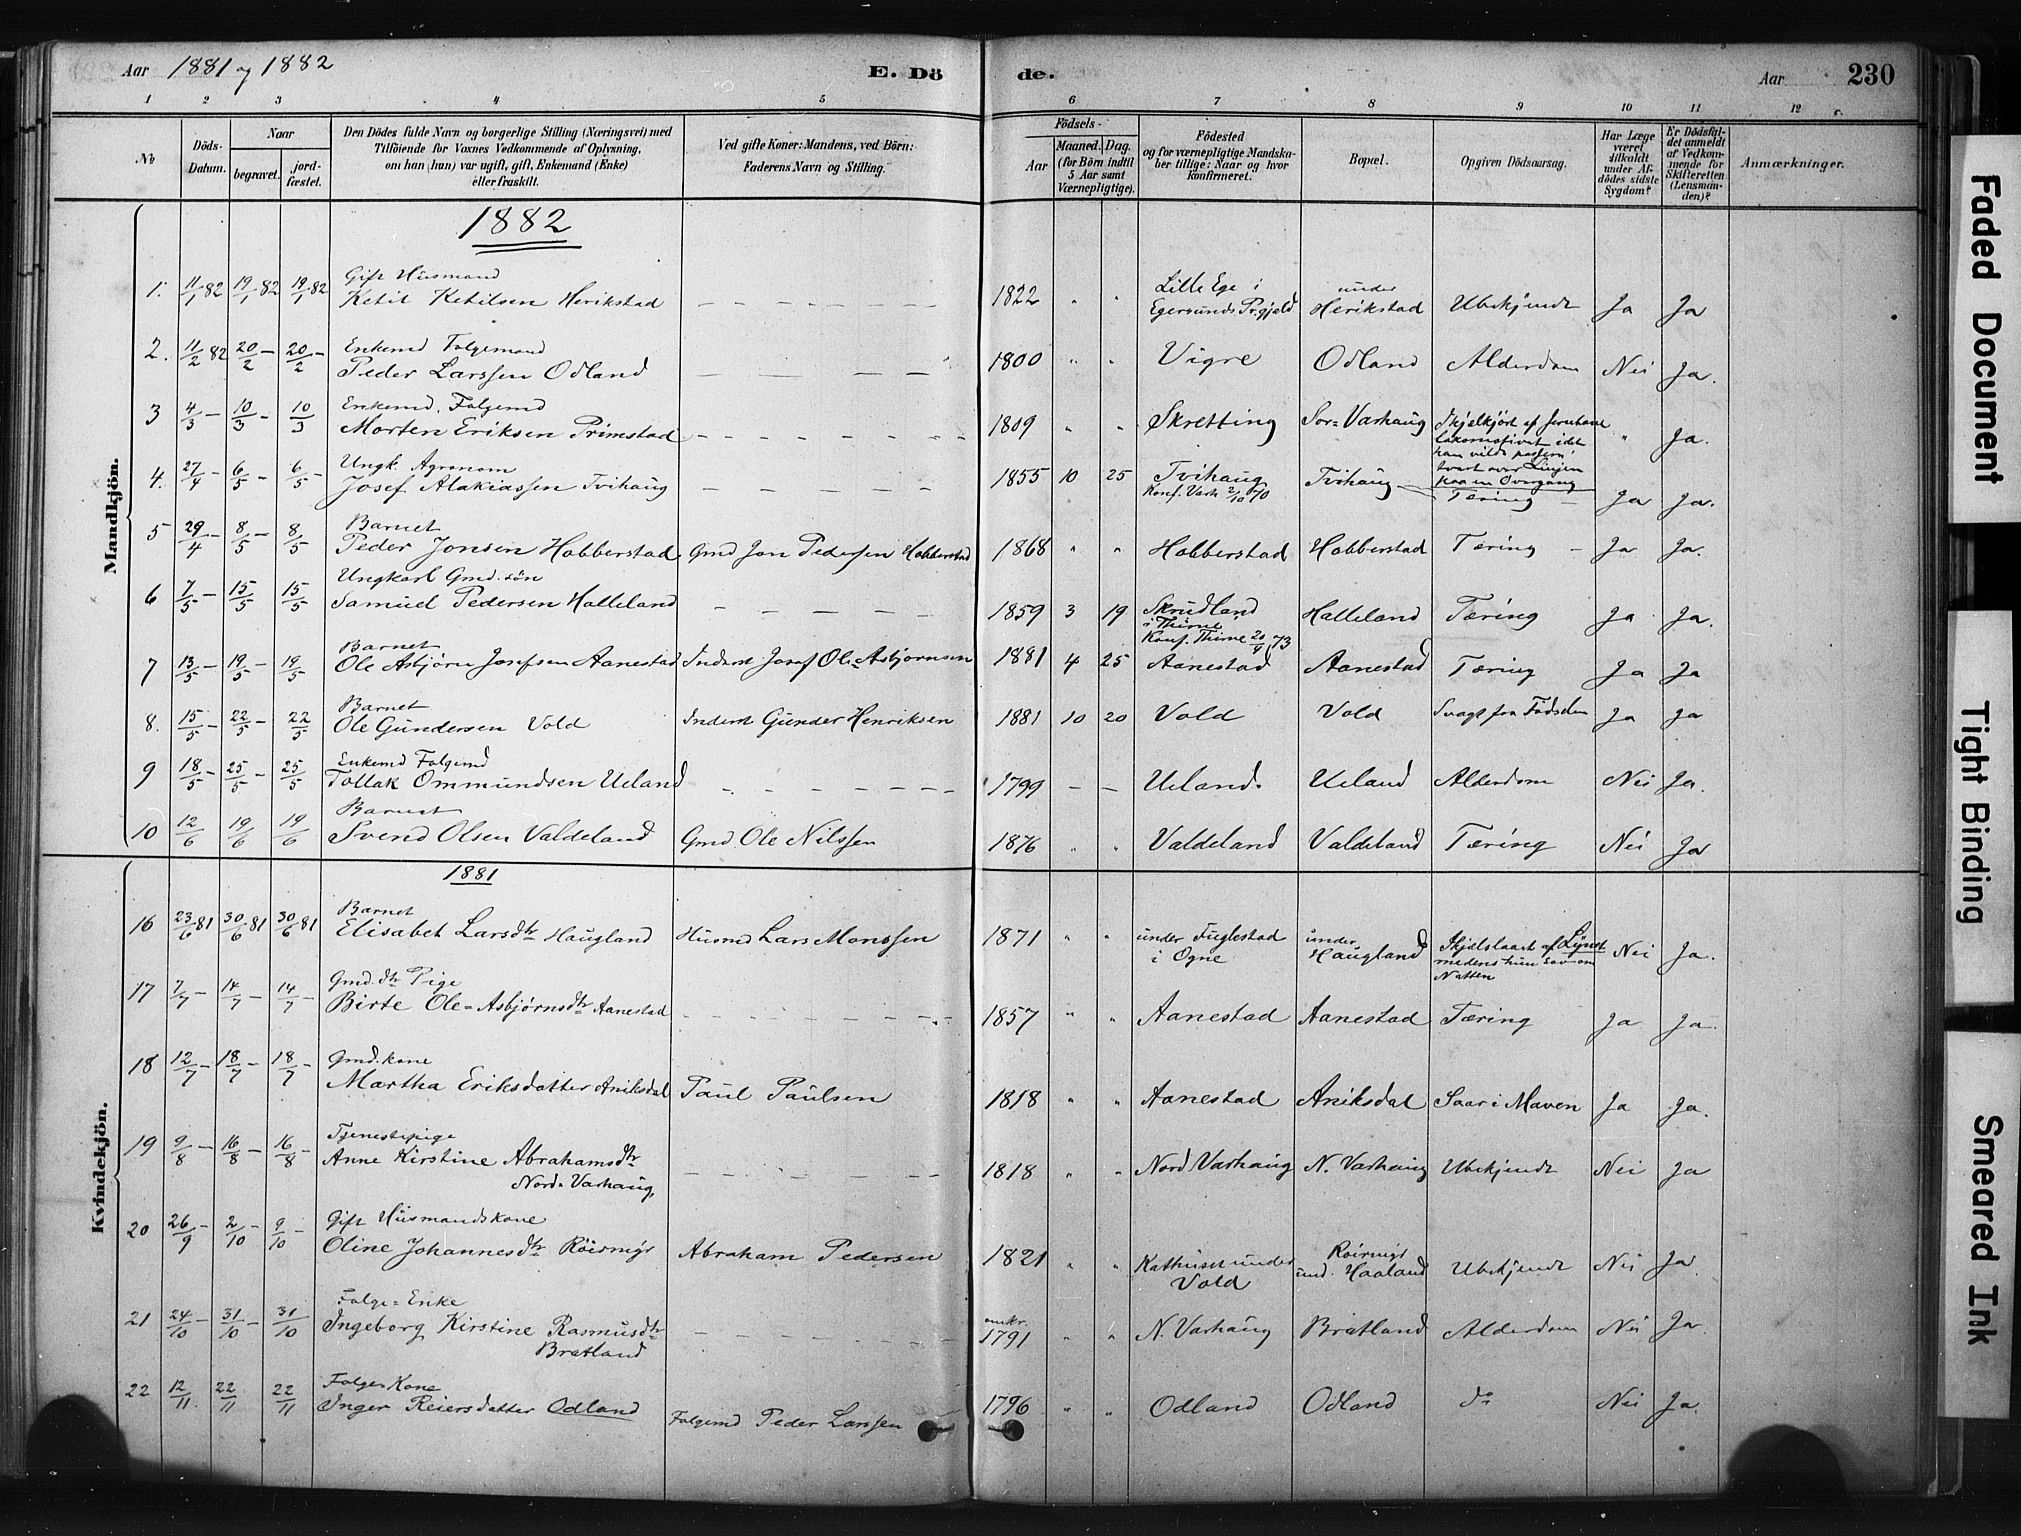 Aar 1881 og 1882 E. Dö de. Aar 230
1 2 3 4 5 6 7 8 9 10 11 12
No
Döds-Datum.
Naar
begravet.
jordfæstet.
Den Dödes fulde Navn og borgerlige Stilling (Næringsvei) med
Tilföiende for Voxnes Vedkommende af Oplysning,
om han (hun) var ugift, gift, Enkemand (Enke)
eller fraskilt.
Ved gifte Koner: Mandens, ved Börn:
Faderens Navn og Stilling.
Födsels-
Aar Maaned. Dag.
(for Börn indtil
5 Aar samt
Værnepligtige).
Födested
og for værnepligtige Mandskaber
tillige: Naar og hvor
konfirmeret.
Bopæl.
Opgiven Dödsaarsag.
Har Læge
været
tilkaldt
under Afdödes
sidste
Sygdom?
Er Dödsfaldet
anmeldt
af Vedkommende
for
Skifteretten
(Lensmanden)?
Anmærkninger.
Mandkjön.
1882
1. 11/1 82 19/1 82 19/1 82 Gift Husmand
Ketil Ketilsen Herikstad — — — — 1822 " " Lille Ege i
Egersunds Prgjeld under
Herikstad Ubekjendt Ja Ja
2. 11/2 82 20/2 — 20/2 — Enkemd Folgemand
Peder Larssen Odland — — — — 1800 " " Vigre Odland Alderdom Nei Ja.
3 4/3 — 10/3 — 10/3 Enkemd. Folgemd
Morten Eriksen Primstad — — — — 1809 " " Skretting Sor-Varhaug Ihjelkjört af Jernbane
lokomotivet idet
han vilde passere
tvart over Linjen
paa en Overgang " Ja.
4. 27/4 — 6/5 — 6/5 — Ungk. Agronom
Josef Malakiassen Tvihaug — — — — 1855 10 25 Tvihaug
Konf. Varh 2/10 70 Tvihaug — Tæring — Ja Ja.
5 29/4 — 8/5 — 8/5 Barnet
Peder Jonsen Hobberstad Gmd Jon Pedersen Hobberstad 1868 " " Hobberstad Hobberstad Tæring — Ja Ja.
6 7/5 — 15/5 15/5 Ungkarl Gmd. sön
Samuel Pedersen Halleland — — — — 1859 3 19 Skrudland
i Thime
Konf. Thime 20/9 73 Halleland Tæring Ja Ja.
7 13/5 — 19/5 — 19/5 Barnet
Ole Asbjörn Josefsen Aanestad Inderst Josef Ole-Asbjörnsen 1881 4 25 Aanestad Aanestad Tæring Ja Ja
8. 15/5 — 22/5 — 22/5 Barnet
Ole Gundersen Vold Inderst Gunder Henriksen 1881 10 20 Vold Vold Svag fra Födselen Ja Ja
9 18/5 — 25/5 — 25/5 Enkemd Folgemd
Tollak Ommundsen Ueland — — — — 1799 — — Ueland. Ueland Alderdom Nei Ja.
10 12/6 19/6 19/6 Barnet
Svend Olsen Valdeland Gmd Ole Nilssen 1876 " " Valdeland Valdeland Tæring Nei Ja
Kvindekjön.
1881
16 23/6 81 30/6 81 30/6 81 Barnet
Elisabet Larsdtr Haugland Husmd Lars Monssen 1871 " " under Fuglestad
i Ogne under
Haugland Ihjelslaaet af Lynet
medens hun sov om
Natten Nei Ja.
17 7/7 — 14/7 — 14/7 — Gmd. dtr Pige
Birte Ole-Asbjørnsdtr Aanestad — — — — 1857 " " Aanestad Aanestad Tæring Ja Ja.
18 12/7 — 18/7 — 18/7 — Gmd. kone
Martha Eriksdatter Aniksdal Paul Paulsen 1818 " " Aanestad Aniksdal Saar i Maven Ja Ja.
19 9/8 — 16/8 — 16/8 — Tjenestepige
Anne Kirstine Abrahamsdtr
Nord-Varhaug, — — — — 1818 " " Nord Varhaug N. Varhaug Ubekjendt Nei Ja
20 26/9 — 2/10 — 9/10 — Gift Husmandskone
Oline Johannesdtr Röirmyr Abraham Pedersen 1821 " " Kathuset under
Vold Roirmyr
und. Haaland Ubekjendt Nei Ja.
21 24/10 — 31/10 — 31/10 Folge-Enke
Ingeborg Kirstine Rasmusdtr
Bratland — — — — omkr.
1791 " " N. Varhaug Bratland Alderdom Nei Ja.
22 12/11. 22/11 22/11 Folge-Kone
Inger Reiersdatter Odland Folgemd Peder Larssen 1796 " " Odland Odland do Nei Ja.
Faded Document
Tight Binding
Smeared Ink